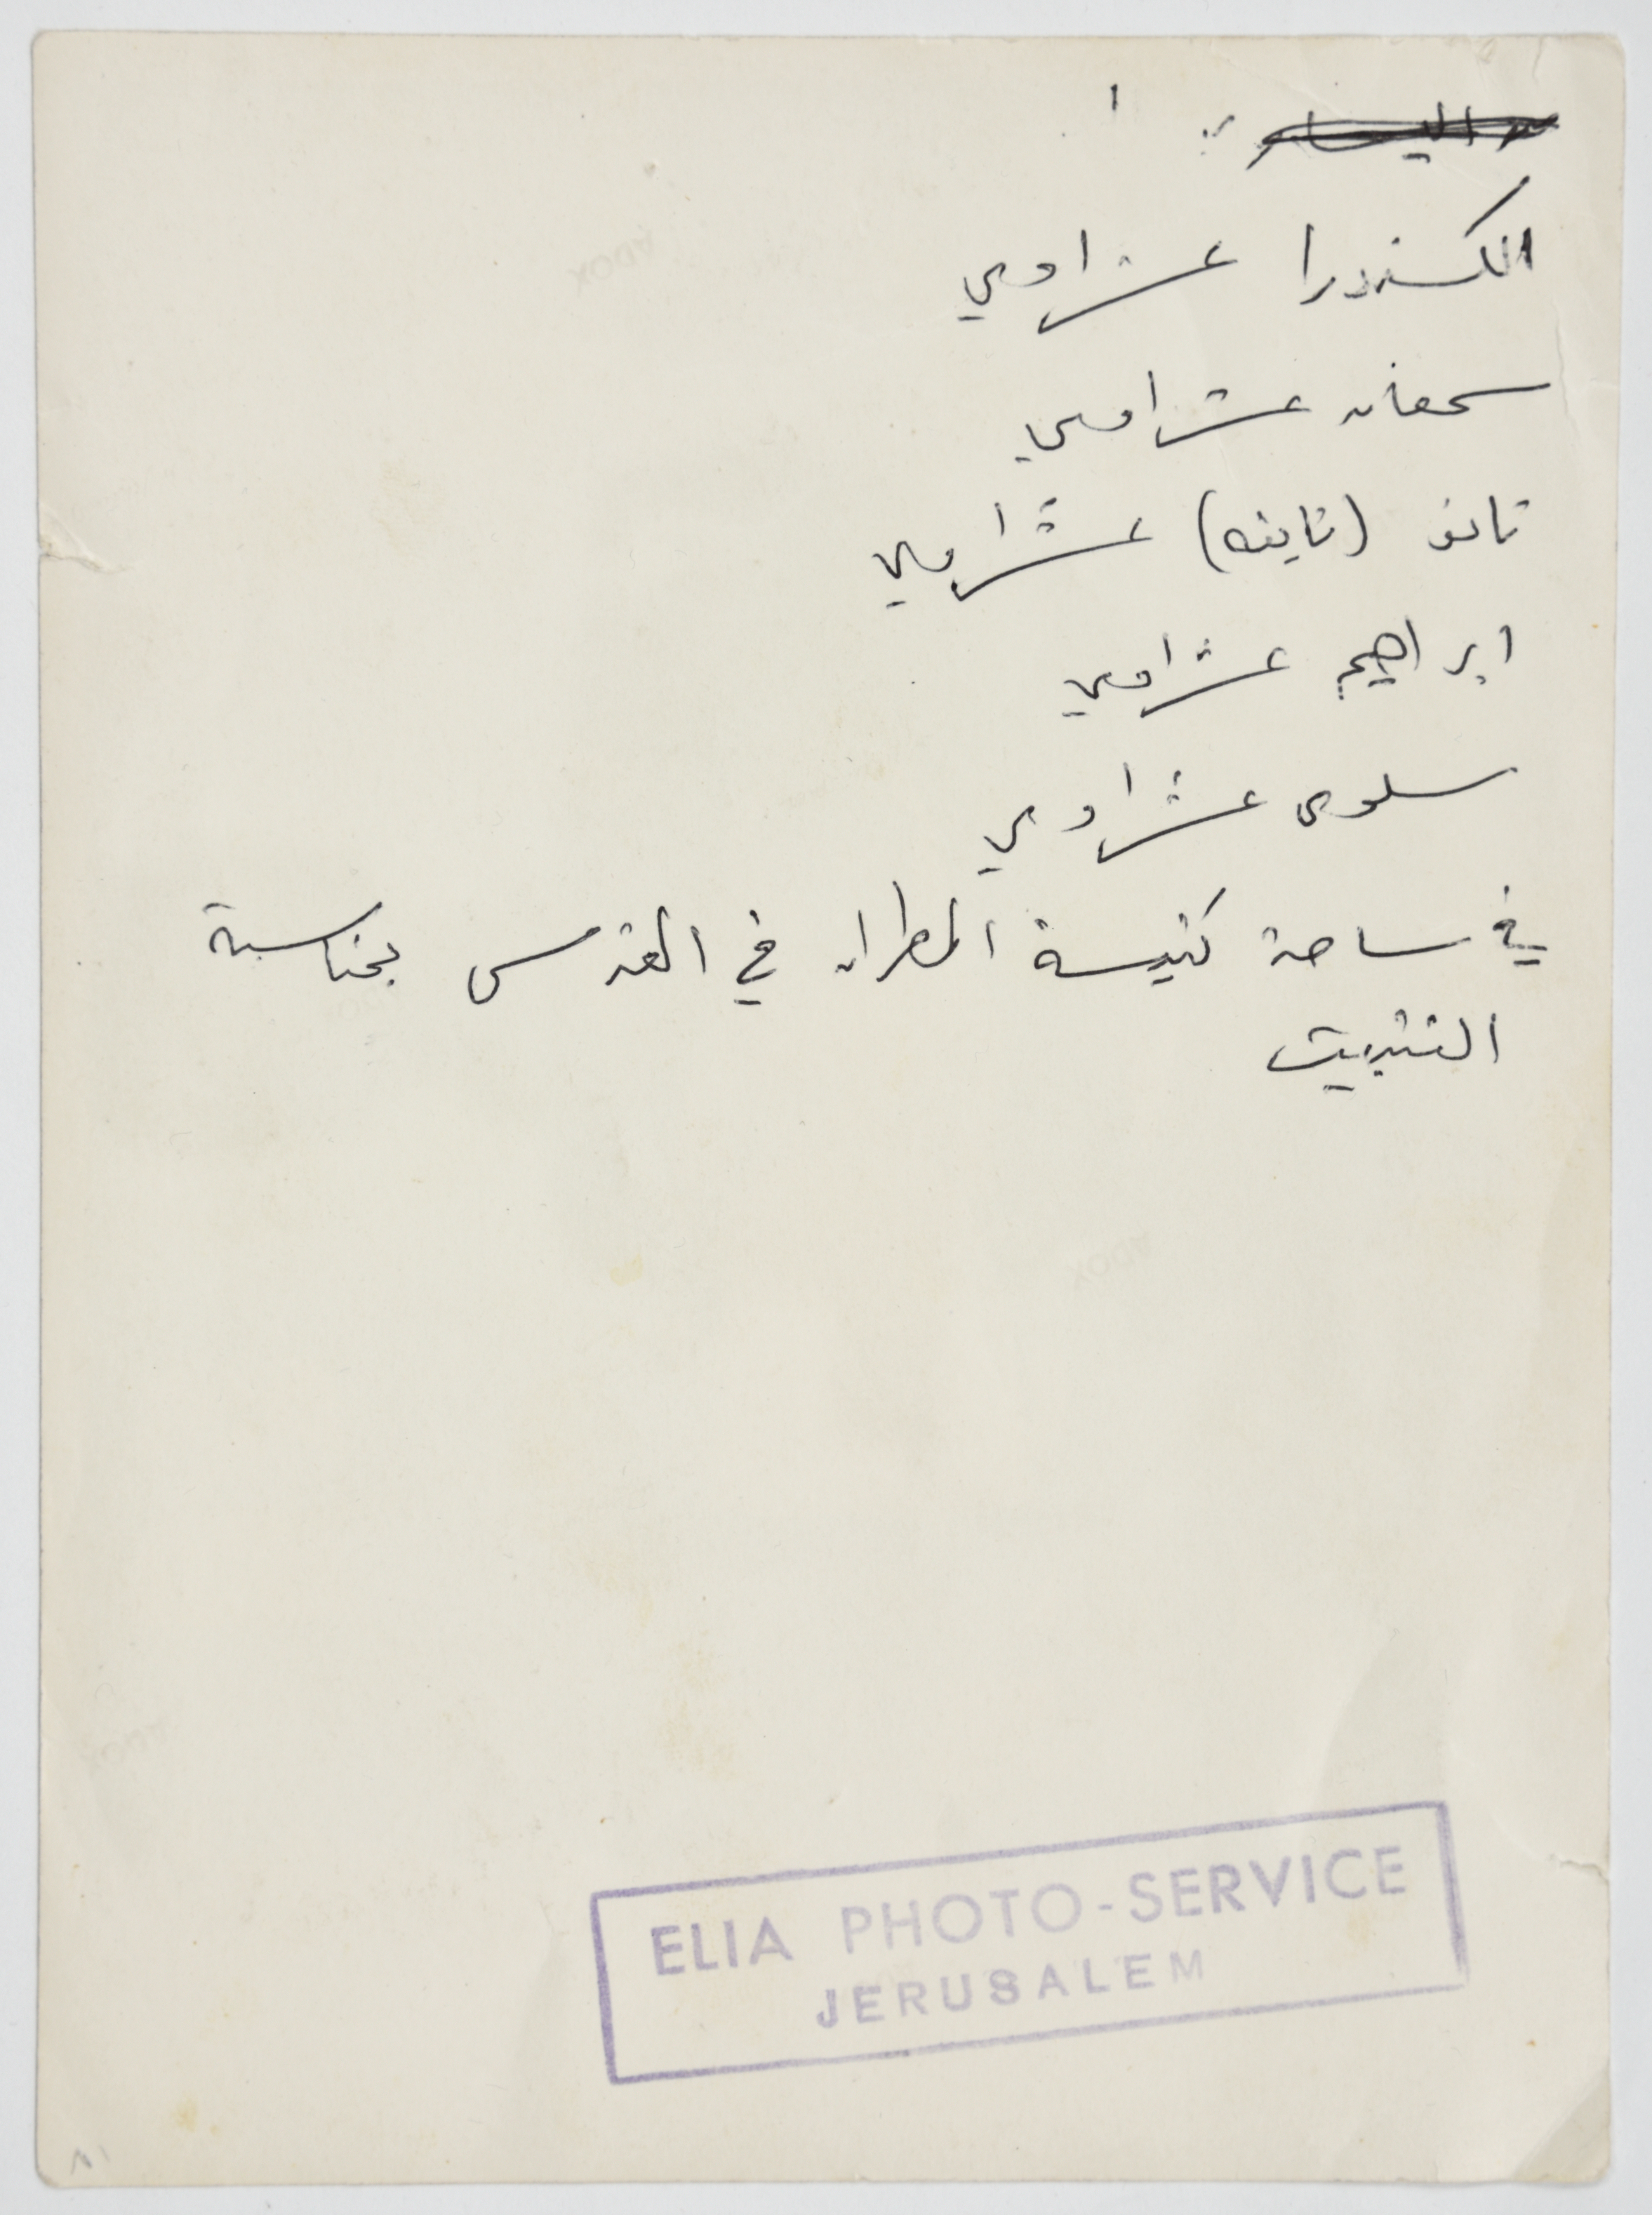 الكسندرا عشراوي
سمعان عشراوي
(تاينه) عشراوي
ابراهيم عشراوي
سلوى عشراوي
في ساحة كنيسة المطران في القدس بمناسبة
التثبيت
ELIA PHOTO-SERVICE
JERUSALEM